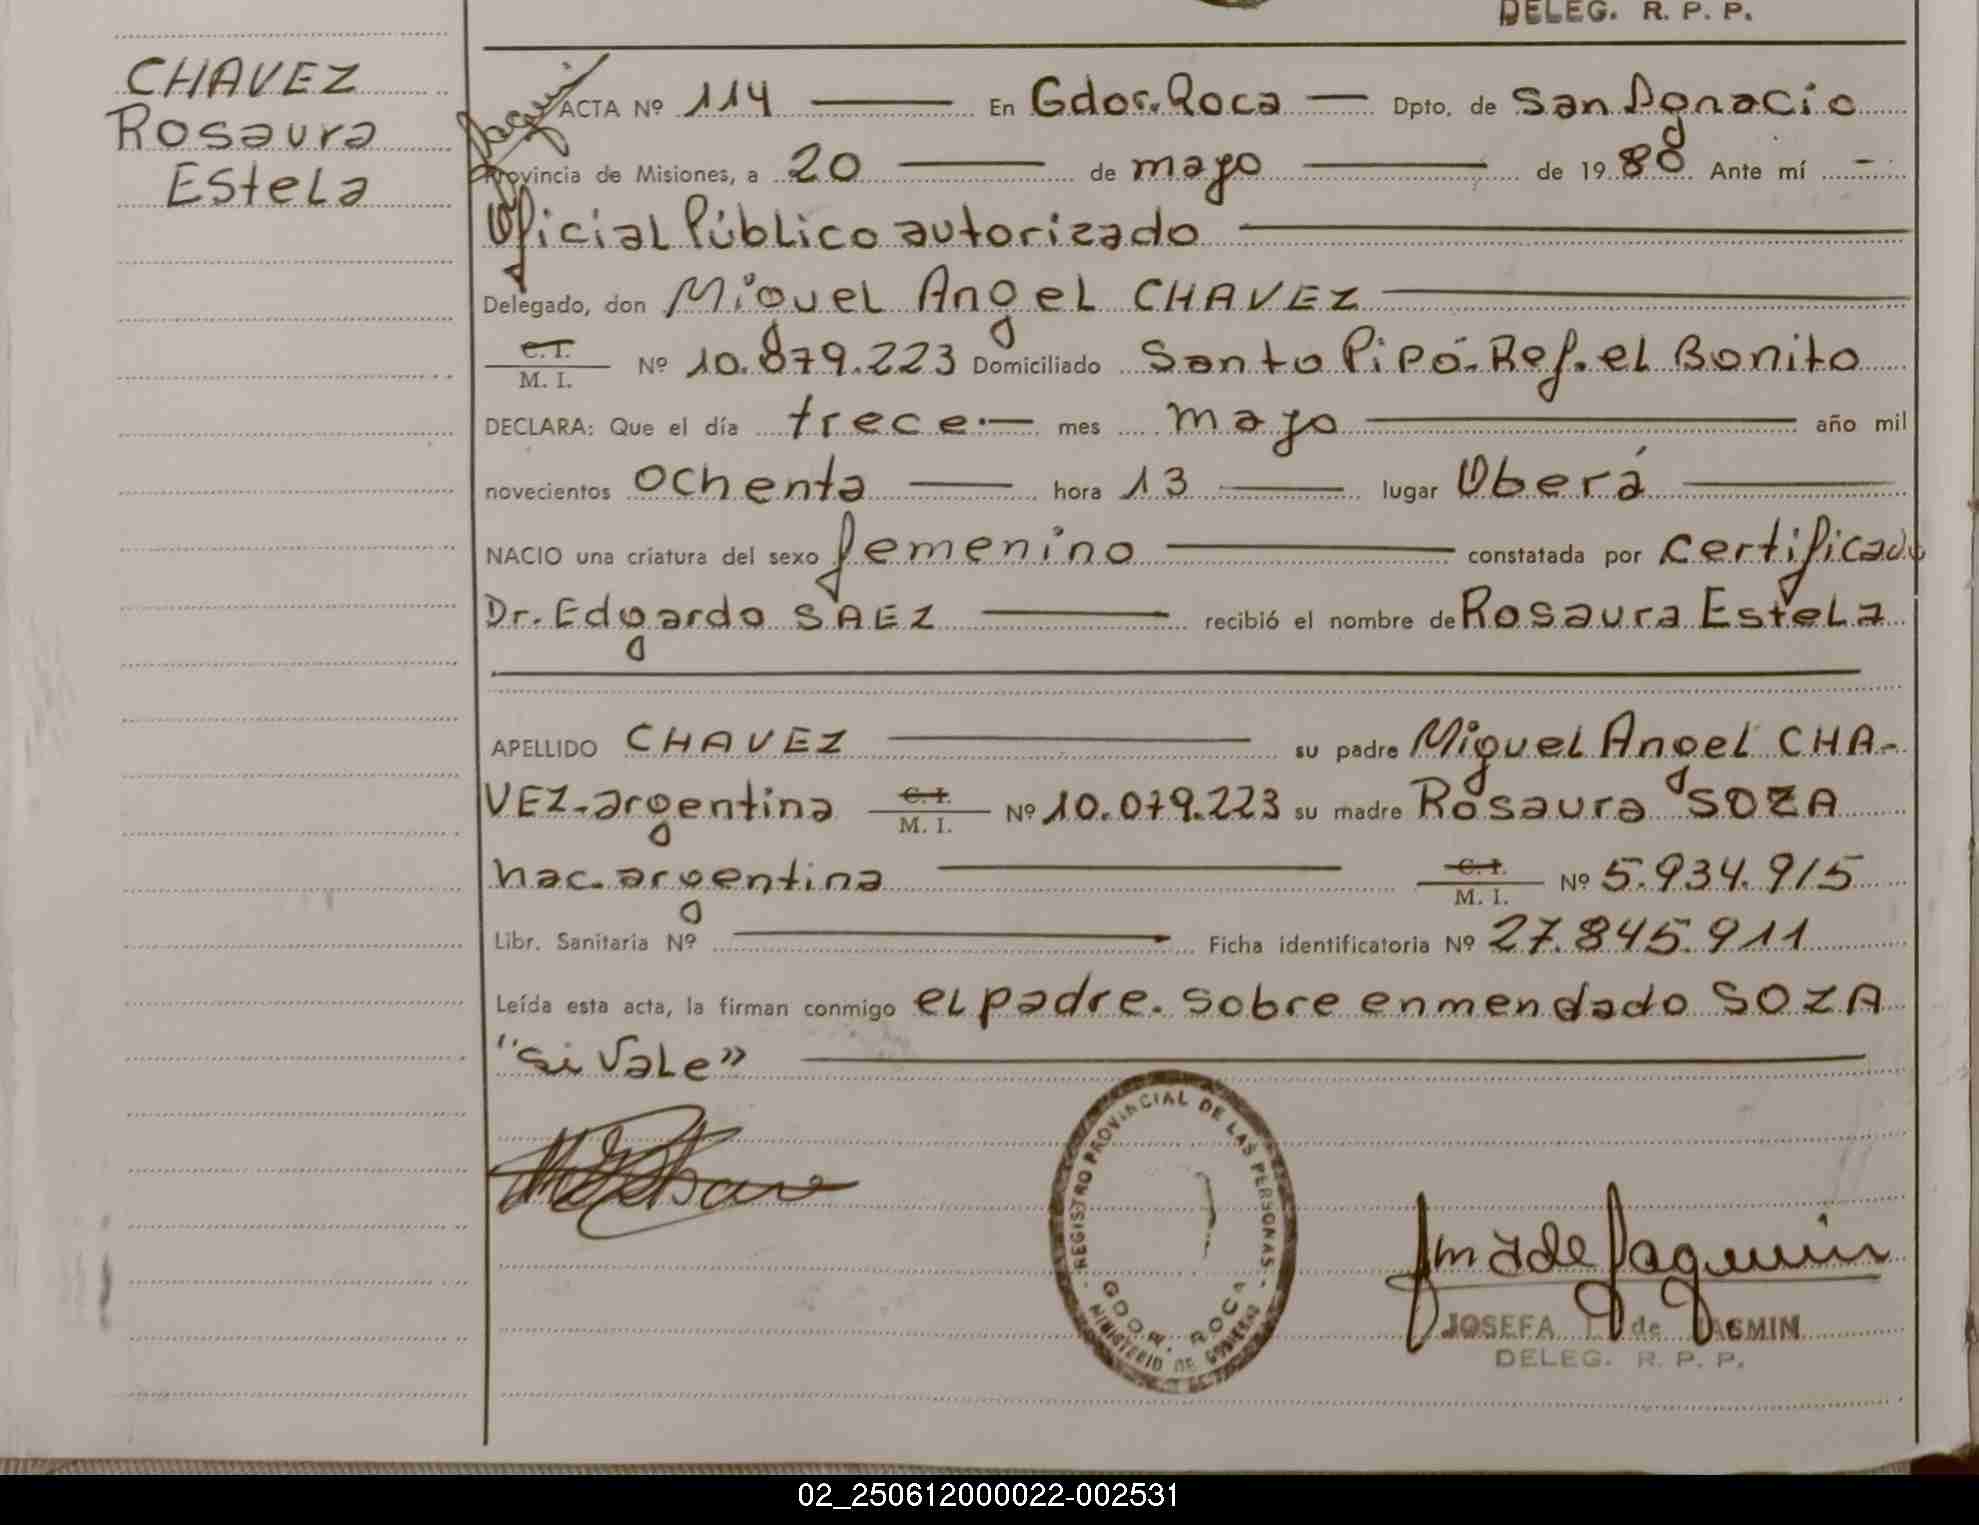 DELEG. R. P. P.
CHAVEZ
Rosaura
Estela
ACTA Nº 114 En Gdor. Roca Dpto. de San Ignacio
Provincia de Misiones, a 20 de mayo de 1980 Ante mí
Oficial Público autorizado
Delegado, don Miguel Angel CHAVEZ
C. I.
M. I. Nº 10.879.223 Domiciliado Santo Pipó. Ref. el Bonito
DECLARA: Que el día trece.- mes mayo año mil
novecientos ochenta hora 13 lugar Oberá
NACIO una criatura del sexo femenino constatada por certificado
Dr. Edgardo SAEZ recibió el nombre de Rosaura Estela
APELLIDO CHAVEZ su padre Miguel Angel CHA-
VEZ-argentina C. I. M. I. Nº 10.079.223 su madre Rosaura SOZA
nac. argentina C. I. M. I. Nº 5.934.915
Libr. Sanitaria Nº Ficha identificatoria Nº 27.845.911
Leída esta acta, la firman conmigo el padre. sobre enmendado SOZA
"si vale"
REGISTRO PROVINCIAL DE LAS PERSONAS
GDOR. ROCA
MINISTERIO DE GOBIERNO
JOSEFA de
DELEG. R. P. P.
02_250612000022-002531